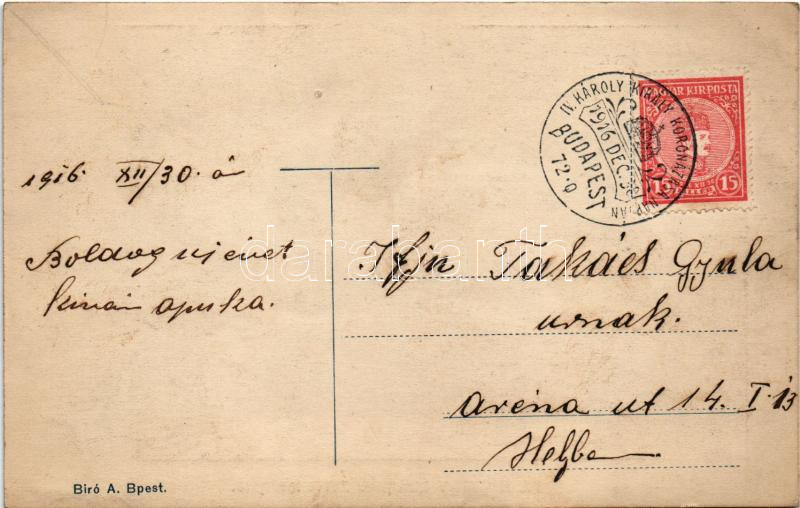 IV. KÁROLY KIRÁLY KORONÁZÁSA NAPJÁN
1916 DEC. 30
BUDAPEST
72·Q
MAGYAR KIR. POSTA
15 15
1916 XII/30.-án
Boldog uj évet
kíván apuka.
darabanth
Ifjn Takács Gyula
urnak.
aréna ut 14. I. 13
Helyben
Biró A. Bpest.